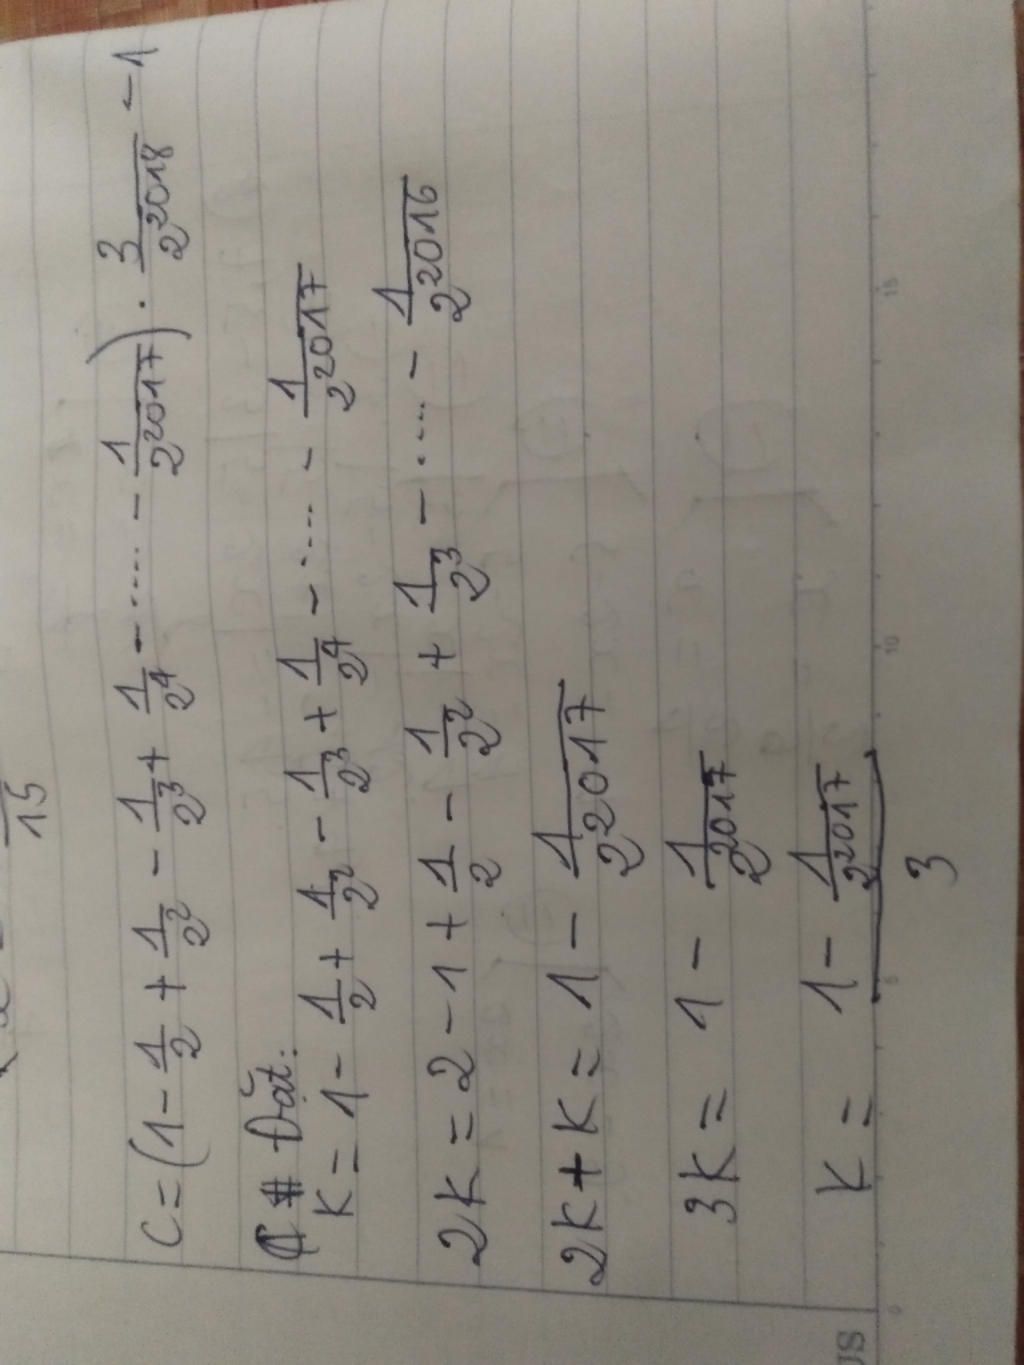 15
C = (1 - 1/2 + 1/2² - 1/2³ + 1/2⁴ - .... - 1/2²⁰¹⁷) . 3/2²⁰¹⁸ - 1
# Đặt:
K = 1 - 1/2 + 1/2² - 1/2³ + 1/2⁴ - .... - 1/2²⁰¹⁷
2K = 2 - 1 + 1/2 - 1/2² + 1/2³ - .... - 1/2²⁰¹⁶
2K + K = 1 - 1/2²⁰¹⁷
3K = 1 - 1/2²⁰¹⁷
K = (1 - 1/2²⁰¹⁷)/3
0 5 10 15